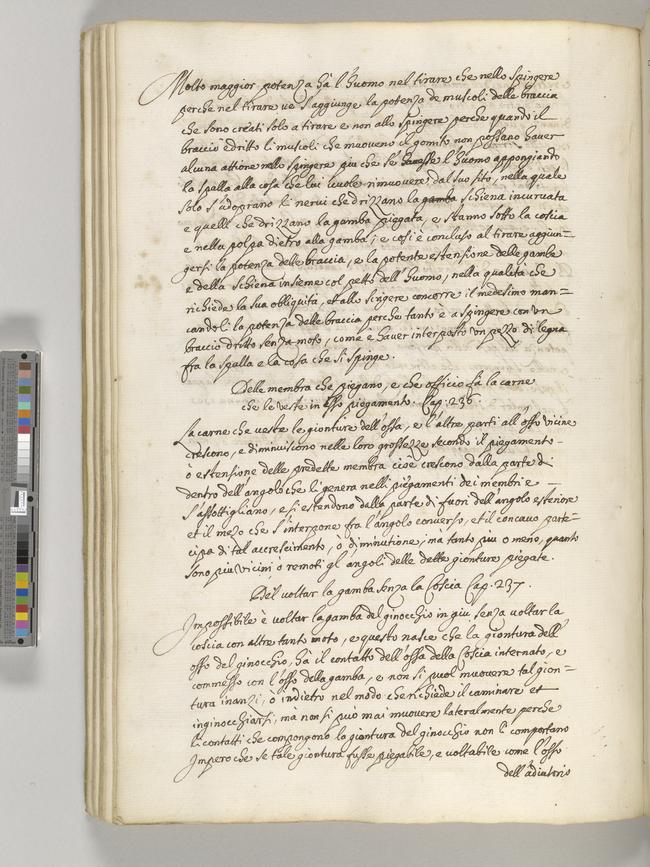 Molto maggior potenza hà l'huomo nel tirare che nello spingere
perche nel tirare ue s'aggiunge la potenza de muscoli delle braccia
che sono creati solo a tirare e non allo spingere perche quando il
braccio è dritto li muscoli che muoueno il gomito non possano hauer
alcuna attione nello spingere piu che se hauesse l'huomo appongiando
la spalla alla cosa che lui uuole rimuouere dal suo sito, nella quale
solo s'adoprano li nerui che drizzano la gamba schiena incuruata
e quelli che drizzano la gamba piegata, e stanno sotto la coscia
e nella polpa dietro alla gamba; e cosi è concluso al tirare aggiun=
gersi la potenza delle braccia, e la potente estensione delle gambe
e della schiena insieme col petto dell'huomo, nella qualità che
richiede la sua obliquità, et allo spingere concorre il medesimo man=
candoli la potenza delle braccia perche tanto è a spingere con un
braccio dritto senza moto, come è hauer interposto un pezzo di legno
fra la spalla e la cosa che si spinge.
Delle membra che piegano, e che officio fà la carne
che le ueste in esso piegamento. Cap. 236.
La carne che ueste le gionture dell'ossa, e l'altre parti all'osso uicine
crescono, e diminuiscono nelle loro grossezze secondo il piegamento
ò estensione delle predette membra cioè crescono dalla parte di
dentro dell'angolo che si genera nelli piegamenti dei membri e
s'assottigliano, e si estendono dalla parte di fuori dell'angolo esteriore
et il mezo che s'interpone fra l'angolo conuerso, et il concauo parte=
cipa di tal accrescimento, ò diminutione, ma tanto piu o meno, quanto
sono piu uicini o remoti gl'angoli delle dette gionture piegate.
Del uoltar la gamba senza la Coscia Cap. 237.
Impossibile è uoltar la gamba del ginocchio in giu senza uoltar la
coscia con altre tanto moto, e questo nasce che la giontura dell'
osso del ginocchio, hà il contatto dell'ossa della Coscia internato, e
commesso con l'osso della gamba, e non si puol muouere tal gion=
tura inanzi, ò indietro nel modo che richiede il caminare et
inginocchiarsi, ma non si può mai muouere lateralmente perche
li contatti che compongono la giontura del ginocchio non li comportano
Impero che se tale giontura fusse piegabile, e uoltabile come l'osso
dell'adiutorio